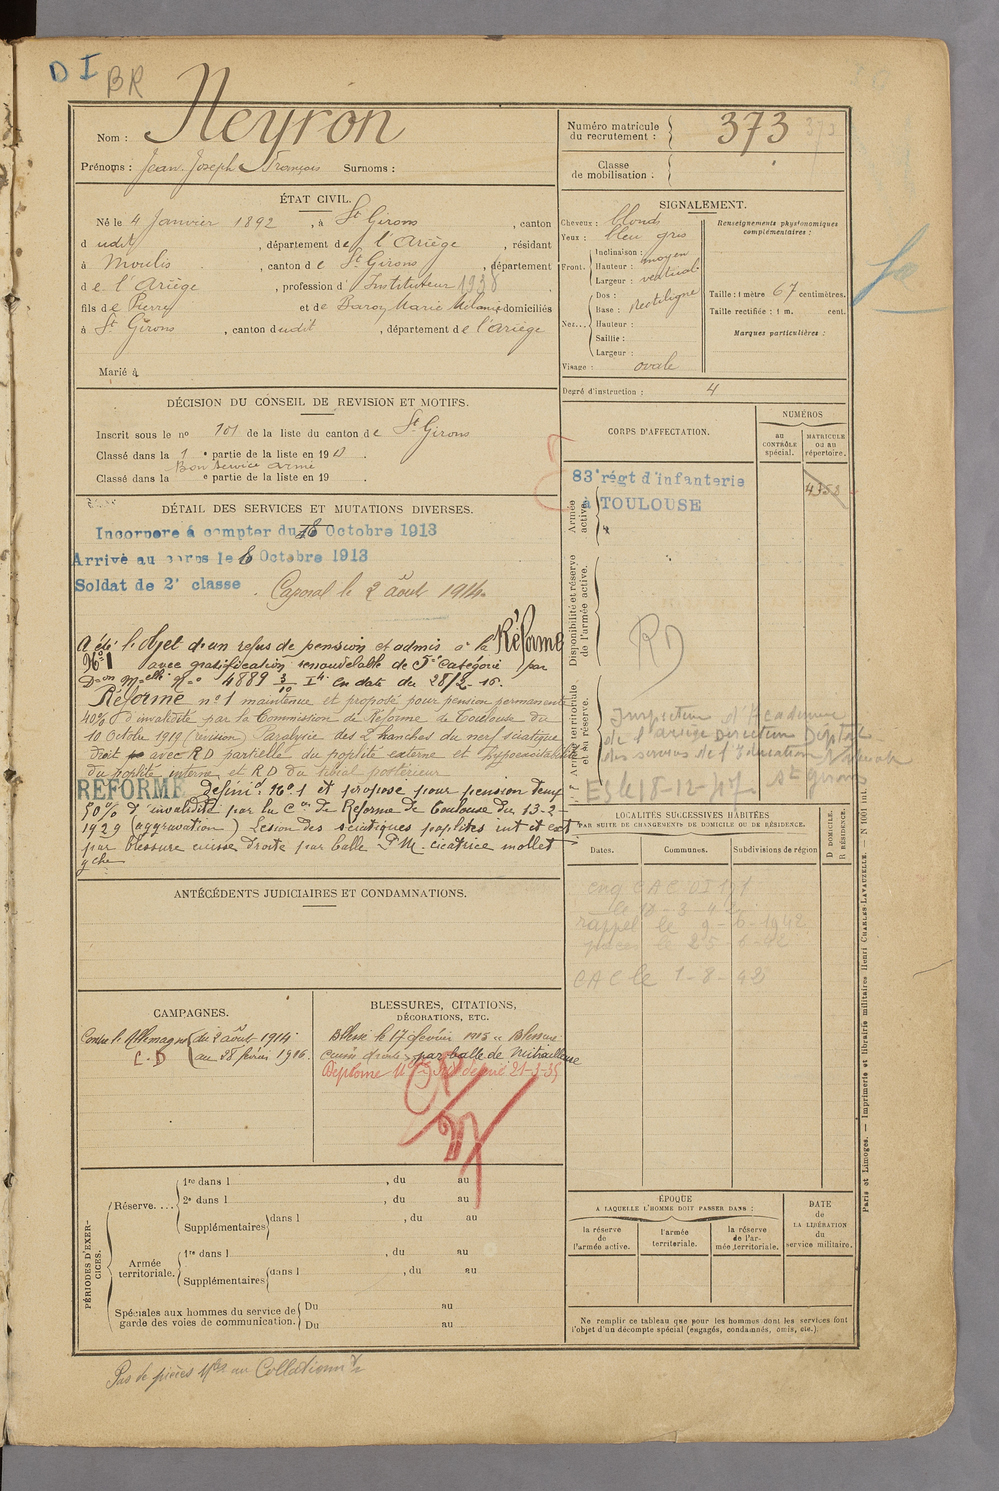 D I BR
Nom : Neyron
Prénoms : Jean Joseph François Surnoms :
Numéro matricule du recrutement : 373
Classe de mobilisation :
ÉTAT CIVIL.
Né le 4 Janvier 1892, à St Girons, canton
dudit, département de l'Ariège, résidant
à Moulis, canton de St Girons, département
de l'Ariège, profession d'Instituteur 1938
fils de Pierre et de Baron Marie Mélanie domiciliés
à St Girons, canton dudit, département de l'Ariège
Marié à
SIGNALEMENT.
Cheveux : blonds
Yeux : bleu gris
Front. Inclinaison : moyen
Hauteur :
Largeur : vertical
Nez... Dos : Rectiligne
Base :
Hauteur :
Saillie :
Largeur :
Visage : ovale
Renseignements physionomiques complémentaires :
Taille : 1 mètre 67 centimètres.
Taille rectifiée : 1 m. cent.
Marques particulières :
Degré d'instruction : 4
DÉCISION DU CONSEIL DE REVISION ET MOTIFS.
Inscrit sous le no 101 de la liste du canton de St Girons
Classé dans la 1 e partie de la liste en 19
Bon service armé
Classé dans la e partie de la liste en 19 .
DÉTAIL DES SERVICES ET MUTATIONS DIVERSES.
Incorporé à compter du 8 Octobre 1913
Arrivé au corps le 8 Octobre 1913
Soldat de 2e classe. Caporal le 2 août 1914.
A été l'objet d'un refus de pension et admis à la Réforme
No 1 avec gratification renouvelable de 5e catégorie par
Don Melle No 4889 3/10 I4 en date du 28/2-16.
Réforme no 1 maintenue et proposé pour pension permanente
40% d'invalidité par la Commission de Réforme de Toulouse du
10 Octobre 1919 (révision) Paralysie des 2 branches du nerf sciatique
droit avec RD partielle du poplité externe et hypoexcitabilité
du poplité interne et RD du tibial postérieur
RÉFORMÉ Définif No 1 et proposé pour pension temp
50% d'invalidité par la Con de Réforme de Toulouse du 13-2-
1929 (aggravation) Lésion des sciatiques poplités int et ext
par blessure cuisse droite par balle cicatrice mollet
gche
CORPS D'AFFECTATION.
NUMÉROS
au CONTRÔLE spécial.
MATRICULE ou au répertoire.
Armée active.
83e régt d'infanterie
à TOULOUSE
4753
Disponibilité et réserve de l'armée active.
RD
Armée territoriale et sa réserve.
Inspection d'Académie
de l'Ariège Direction Deptale
des services de l'Education Nationale
St Girons
ES le 18-12-47
LOCALITÉS SUCCESSIVES HABITÉES
PAR SUITE DE CHANGEMENTS DE DOMICILE OU DE RÉSIDENCE.
Dates.
Communes.
Subdivisions de région
D DOMICILE.
R RÉSIDENCE.
CAC le 1-8-43
ANTÉCÉDENTS JUDICIAIRES ET CONDAMNATIONS.
CAMPAGNES.
Contre l'Allemagne du 2 août 1914
C.D au 28 février 1916.
BLESSURES, CITATIONS,
DÉCORATIONS, ETC.
Blessé le 17 février 1915 « Blessure
cuisse droite » par balle de mitrailleuse
Diplôme 21-3-35
PÉRIODES D'EXERCICES.
Réserve....
1re dans l , du au
2e dans l , du au
Supplémentaires dans l , du au
Armée territoriale.
1re dans l , du au
Supplémentaires dans l , du au
Spéciales aux hommes du service de garde des voies de communication.
Du au
Du au
ÉPOQUE
A LAQUELLE L'HOMME DOIT PASSER DANS :
la réserve de l'armée active.
l'armée territoriale.
la réserve de l'armée territoriale.
DATE de LA LIBÉRATION du service militaire.
Ne remplir ce tableau que pour les hommes dont les services font
l'objet d'un décompte spécial (engagés, condamnés, omis, etc.)
Paris et Limoges. — Imprimerie et librairie militaires Henri CHARLES-LAVAUZELLE.
Pas de pièces